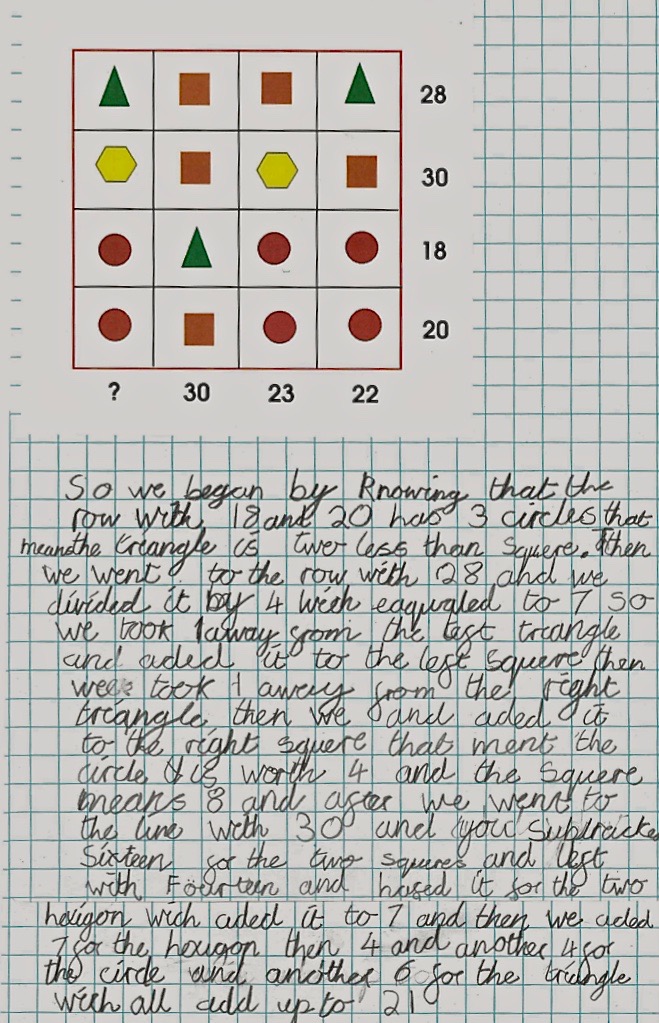 28
30
18
20
? 30 23 22
So we began by Knowing that the
row with 18 and 20 has 3 circles that
means the triangle is two less than square. then
we went to the row with 28 and we
divided it by 4 wich eaqualed to 7 so
we took 1 away from the left triangle
and aded it to the left square then
we took 1 away from the right
triangle then we and aded it
to the right square that ment the
circle is worth 4 and the square
means 8 and after we went to
the line with 30 and you Subtracte
Sixteen for the two squares and left
with Fourteen and hased it for the two
hexigon wich aded it to 7 and then we aded
7 for the hexigon then 4 and another 4 for
the circle and another 6 for the triangle
wich all add up to 21